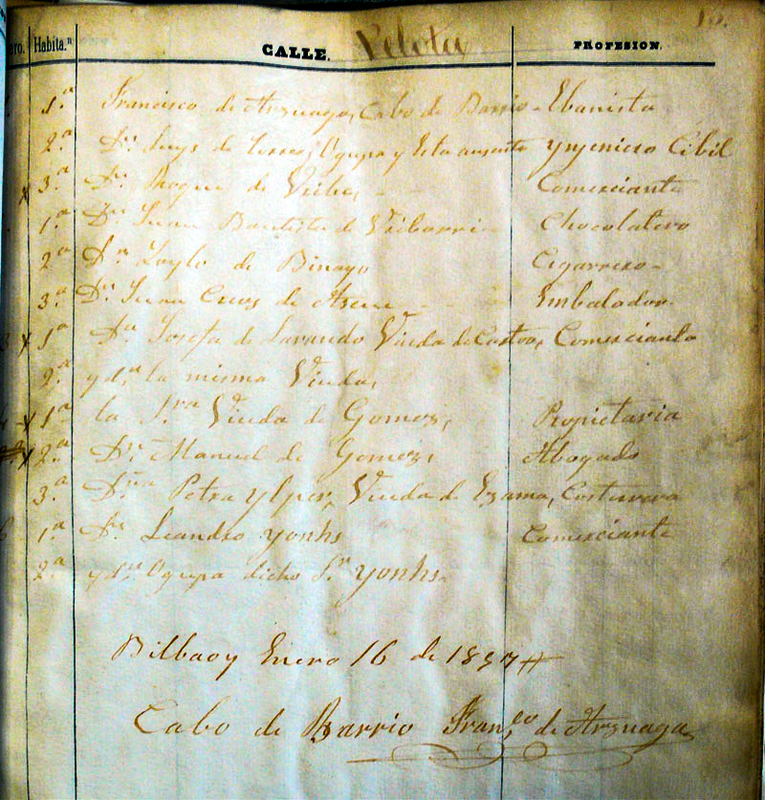 Habita.n CALLE. Pelota PROFESION.
1.a Francisco de Arzuaga, Cabo de Barrio - Ebanista
2.a Dn. Luys de Torres, Ogupa y Esta ausente Ynjeniero Cibil
x 3.a Dn. Roque de Comerciante
1.a Dn. Juan Bautista de Uribarri Chocolatero
2.a Dn. Loylo de Binago Cigarrero -
3.a Dn. Juan Cruz de Embalador.
x 1.a Dña. Josefa de Viuda de Castro, Comercianta
2.a yd.m la misma Viuda,
x 1.a la S.ra Viuda de Gomez, Propietaria
x 2.a Dn. Manuel de Gomez, Abogado
3.a D.ña Petra Viuda de Costurera
1.a Dn. Leandro Yonhs Comerciante
2.a yd.m Ogupa dicho S.r Yonhs.
Bilbao y Enero 16 de 1857
Cabo de Barrio Fran.co de Arzuaga